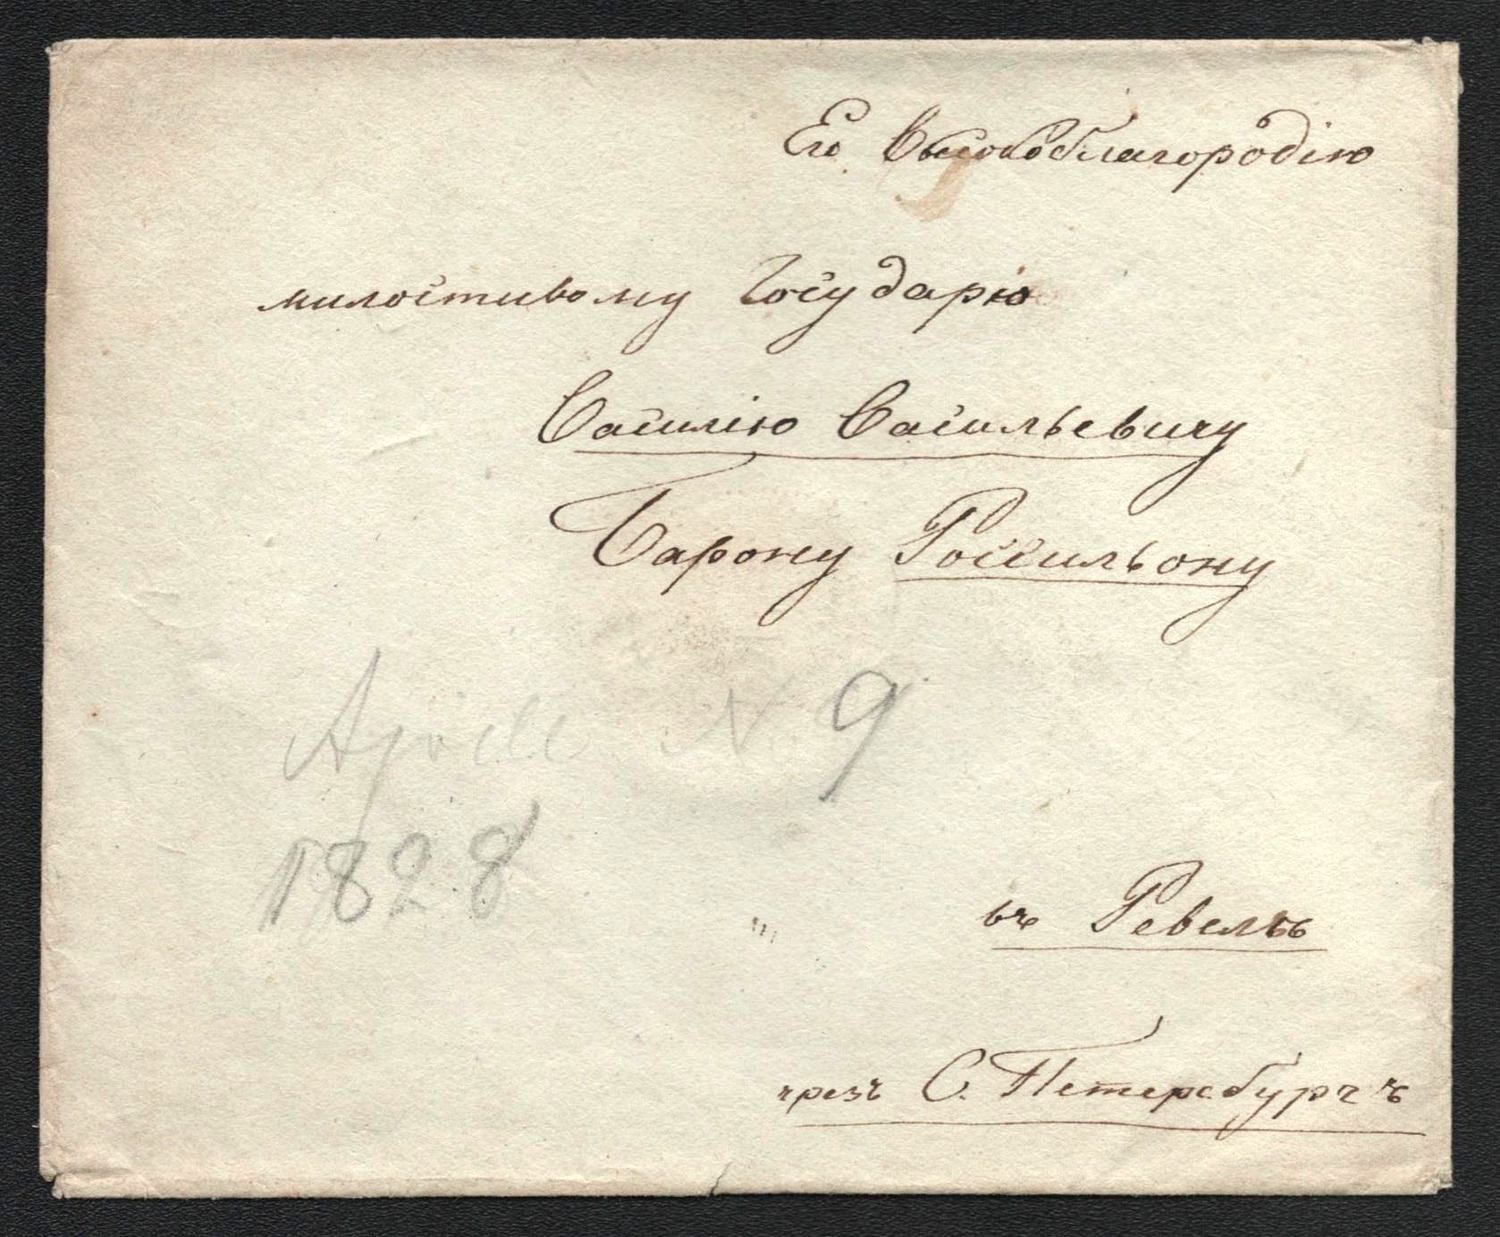 Его Высокоблагородію
милостивому Государю
Василію Васильевичу
Барону Россильону
Aprill N 9
1828
въ Ревелѣ
чрезъ С. Петербургъ